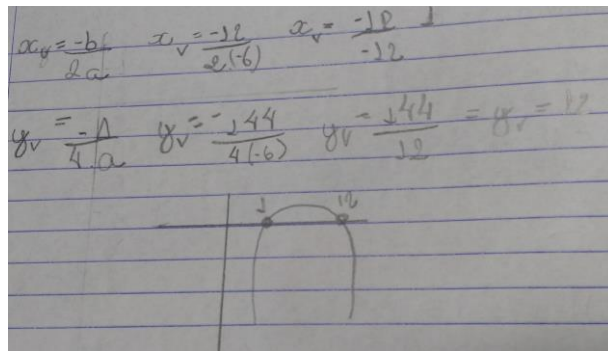 xv = -b/2a xv = -12/2(-6) xv = -12/-12 1
yv = -Δ/4.a yv = -144/4(-6) yv = 144/12 = yv = 12
1 12